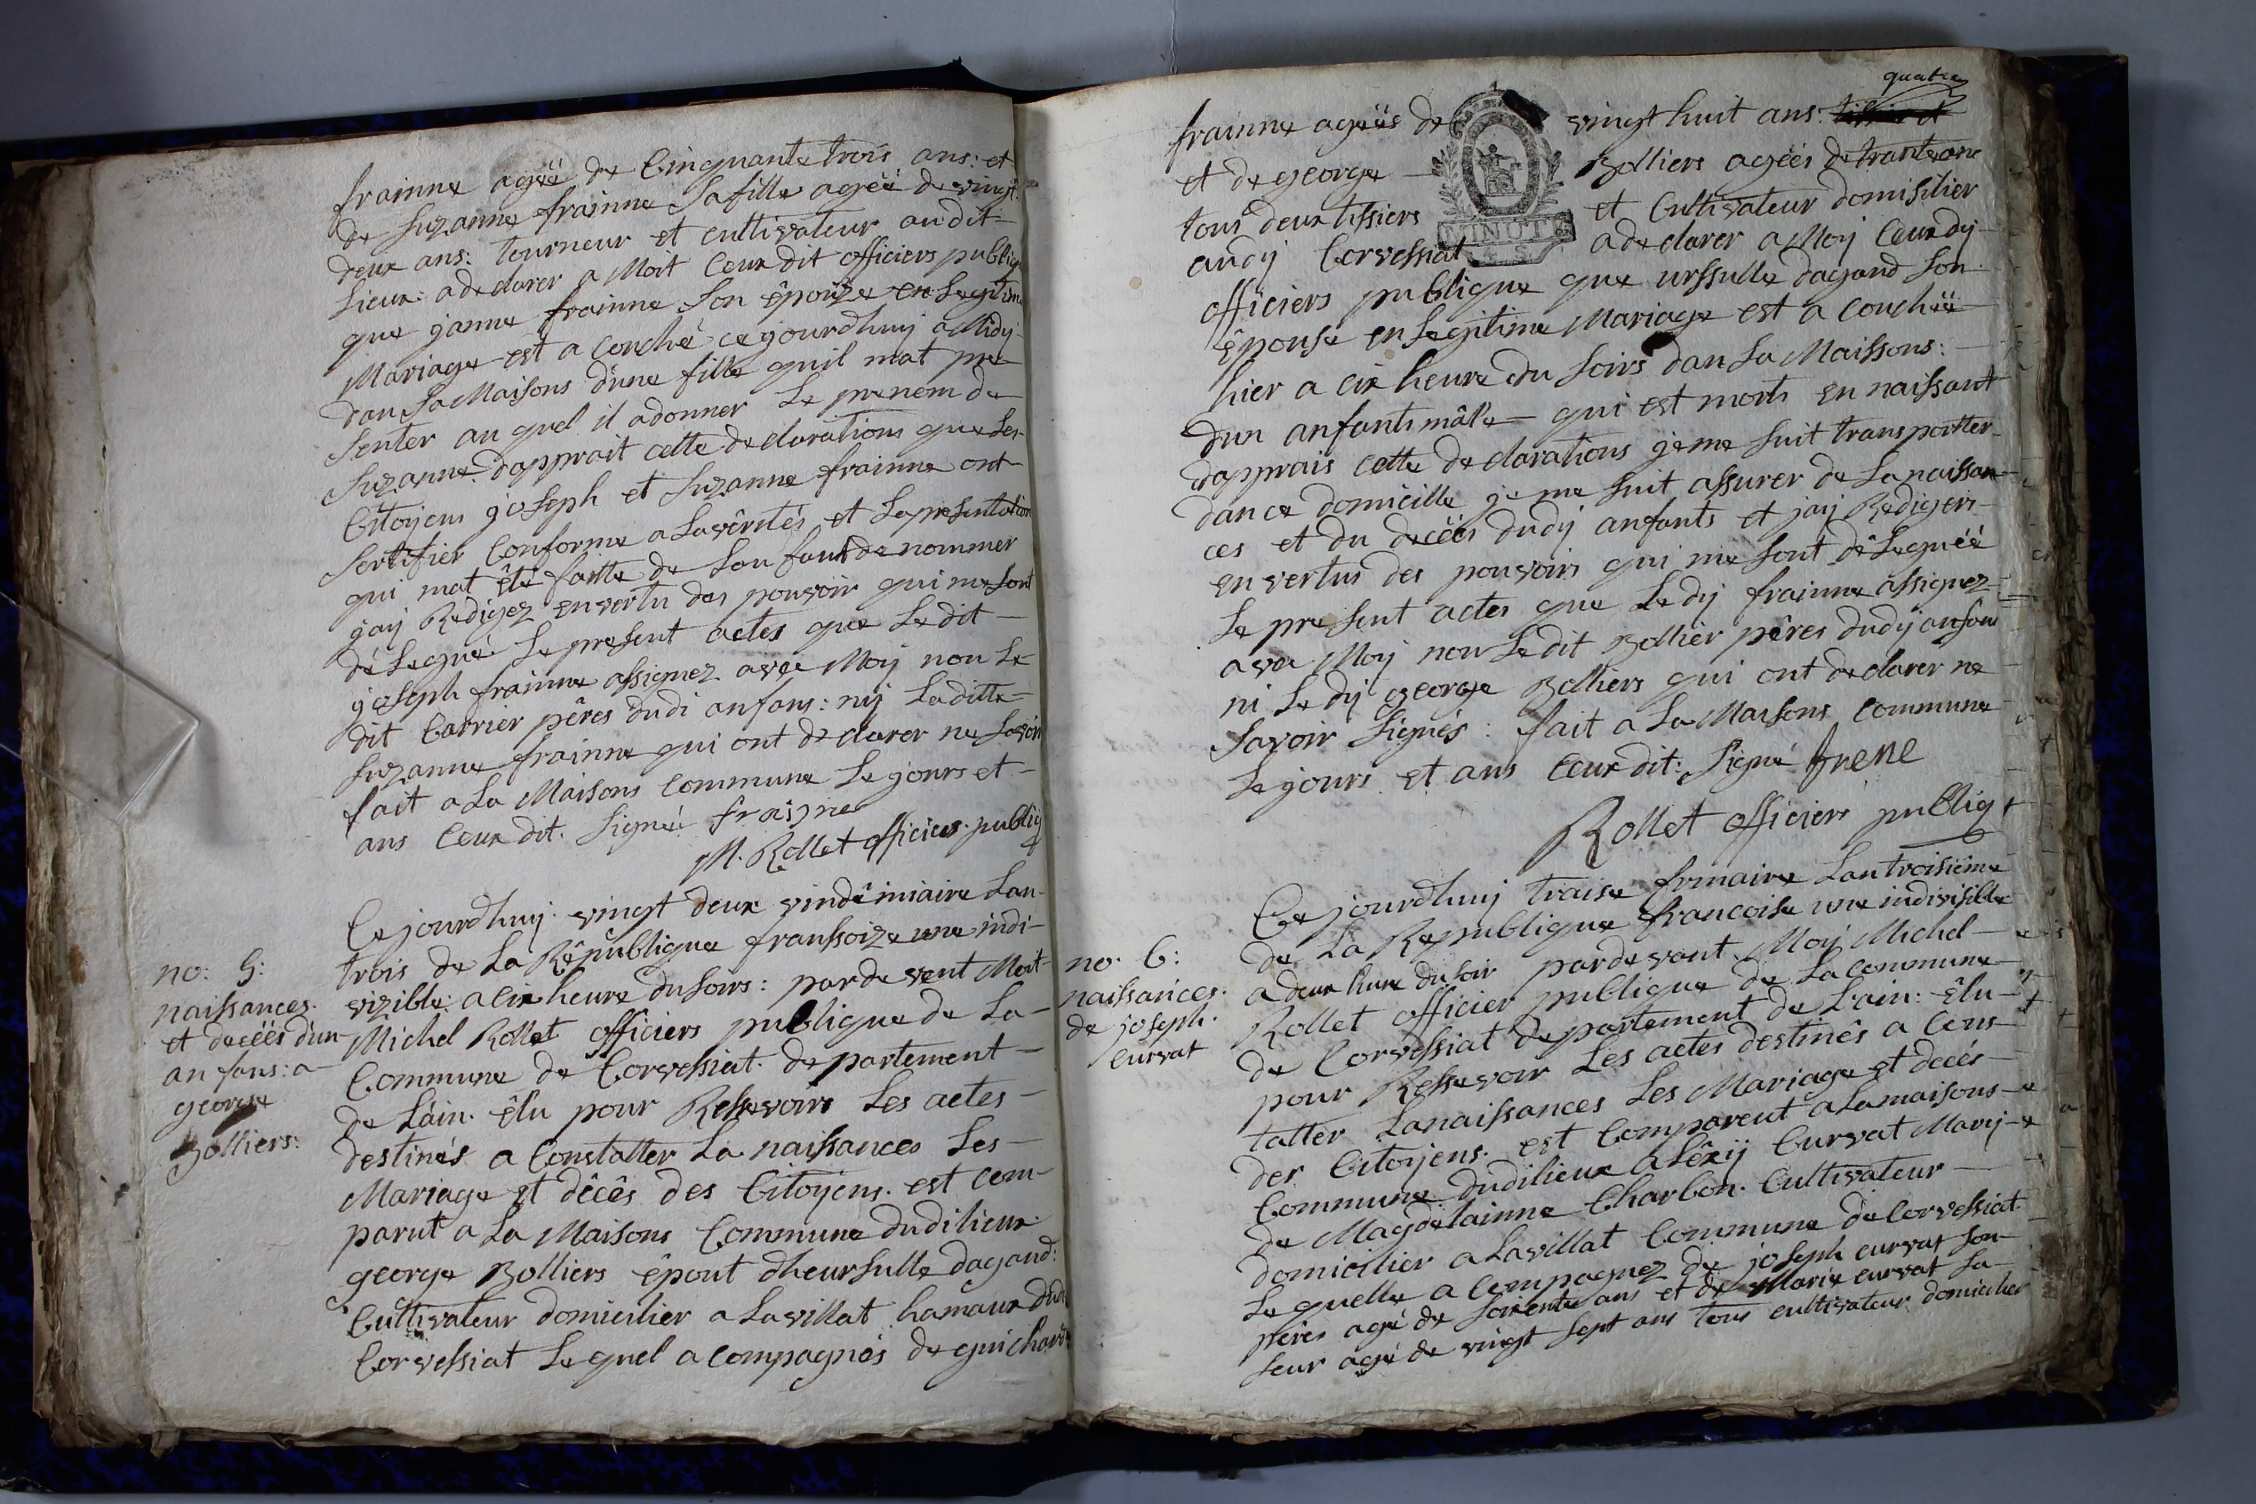 frainne agéé de Cinquante trois ans: et
de Suzanne frainne Sa fille agéé de vingt
deux ans: tourneur et cultivateur au dit
Lieux: a declarer a Moit Ceux dit officiers publiq
que janne frainne Son êpouze en Legitime
Mariage est a couché ce jourdhuij a Midy
dan Sa Maisons dune fille quil mat pre
senter au quel il adonner Le prenom de
Suzanne. dapprait cette declarations que Les
Citoyens joseph et Suzanne frainne ont
Sertifier Conforme a La vêritês et La presentation
qui mat êté faitte de Lon fant de nommer
jaij Redigez en vertu des pouvoir qui me Sont
dé Legué Le present actes que Ledit
joseph frainne assignez avec Moij non Le
dit Carrier pêres dudi anfans: nij Laditte
Suzanne frainne qui ont declarer ne Savoir
fait a La Maisons Commune Le jours et
ans Ceux dit. Signé fraigne
M. Rollet officier publiq
Ce jourdhuij vingt deux vindêmiaire Lan
trois de La Rêpublique franssoize une indi-
vizible: a cix heure du Soirs: parde vent Moit
Michel Rollet officiers publique de La
Commune de Corvessiat. departement
de Lain. êlu pour Ressevoirs Les actes
destinés a Constatter La naissances Les
Mariage et dêcês des Citoyens. est com-
parut a La Maisons Commune dudi lieux
george Bolliers êpout dheursulle dagand:
Cultivateur domicilier a Lavillat hamaux dudi
Corvessiat Lequel a compagnés de guichard
no: 5:
naissances.
et decéés dun
an fans: a
george
Bolliers:
quatre
frainne agéés de vingt huit ans:
et de george Bolliers agéés de trante ans
tous deux tissiers et Cultivateur domisilier
au dy Corvessiat a declarer a Moij Ceux dy
MINUTE
officiers publique que urssulle dagand Son
êpouse en Legitime Mariage est a couchéé
hier a cix heure du Soirs dan Sa Maissons:
dun anfants mâle qui est morts en naissant
dapprais cette declarations je me Suit transportter
dan ce domicille je me Suit assurer de La naissan
ces et du decéés dudy anfants et jaij Redigers
en vertus des pouvoirs qui me Sont dêLeguéé
Le present actes que Ledy frainne assignez
avec Moij non Ledit Bollier pêres dudy anfans
ni Ledy george Bolliers qui ont declarer ne
Savoir Signés: fait a La Maisons Commune
Le jours et ans Ceux dit: Signé frene
Rollet officiers publiq
Ce jourdhuij traise frimaire Lan troisiême
de La Republique francoise une indivisible
a deux heure du soir par devant Moij Michel
Rollet officier publique de La Commune
de Corvessiat departement de Lain: êlu
pour Ressevoir Les actes destinês a Cons
tatter La naissances Les Mariage et decés
des Citoyens. est Comparent a La maisons
Commune dudilieux alêxij Curvat Marij
de Magdelainne Charbon. Cultivateur
domicilier a Lavillat Commune de Corvessiat
Le quelle a Compagnez de joseph curvat son
pères agé de soixente ans et de Marie curvat sa
seur agé de vingt sept ans tous cultivateur domicilier
no. 6:
naissances.
de joseph.
curvat